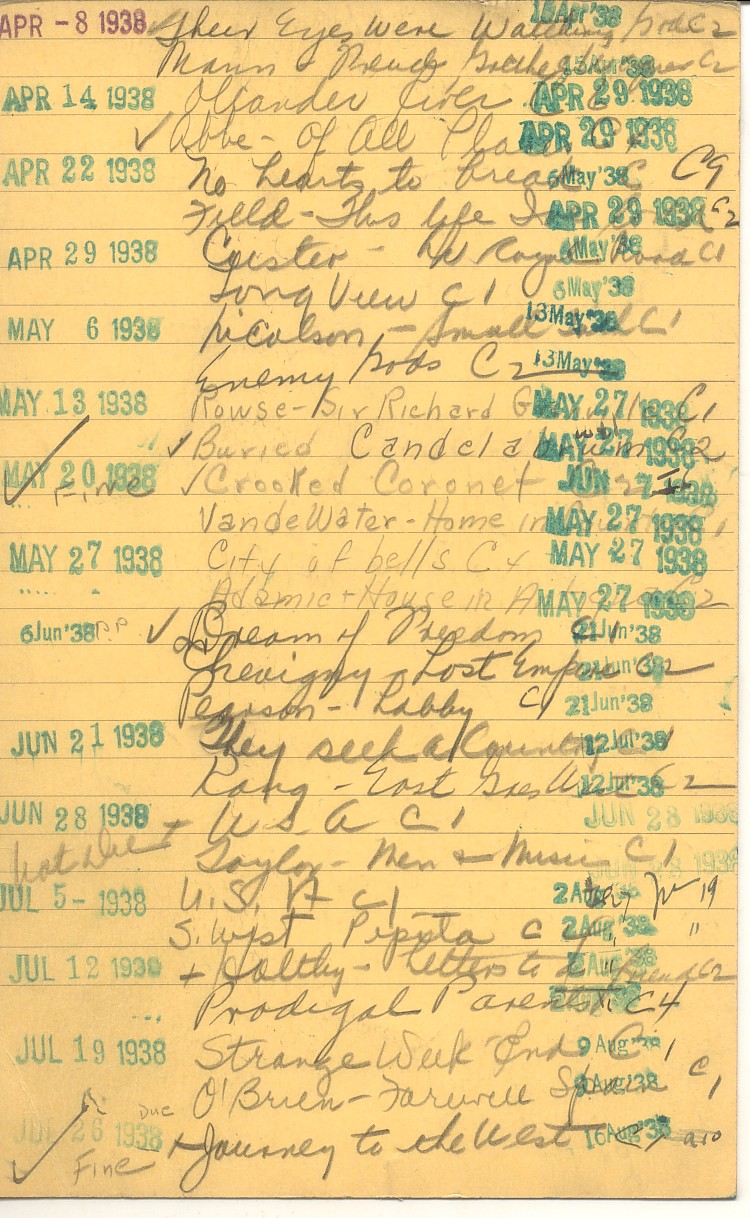 APR - 8 1938 Their Eyes Were Watching God C2 15Apr'38
Mann & Freud Goethe C2 15Apr'38
APR 14 1938 Oleander River C APR 29 1938
✓ Abbe - Of All Places C APR 29 1938
APR 22 1938 No hearts to break C C9 6May'38
Field - This life I C2 APR 29 1938
APR 29 1938 Custer - No Royal Road C1 6May'38
Long View C1 6May'38
MAY 6 1938 Nicolson - Small C1 13May'38
Enemy Gods C2 13May'38
MAY 13 1938 Rowse - Sir Richard Grenville C1 MAY 27 1938
✓ Buried Candelabrum C2 MAY 27 1938
MAY 20 1938 ✓ Crooked Coronet C2 JUN 7 1938
✓ Fine
Van de Water - Home in C1 MAY 27 1938
MAY 27 1938 City of bells C4 MAY 27 1938
Adamic - House in Antigua C2 MAY 27 1938
6Jun'38 P.P ✓ Dream of Freedom C1 21Jun'38
Chevigny - Lost Empire C2 21Jun'38
Pearson - Lobby C1 21Jun'38
JUN 21 1938 They seek a Country C1 12Jul'38
Kang - East Goes West C2 12Jul'38
JUN 28 1938 + U S A C1 JUN 28 1938
Not due
Taylor - Men & Music C1 JUN 28 1938
JUL 5 - 1938 U.S. A C1 2Aug'38 July 19
S. West Pepita C 2Aug'38 "
JUL 12 1938 + Holtby - Letters to a friend C2 2Aug'38
Prodigal Parents C4
JUL 19 1938 Strange Week End C1 9Aug'38
O'Brien - Farewell Spain C1 9Aug'38
Due
JUL 26 1938 + Journey to the West 16Aug'38
✓ Fine